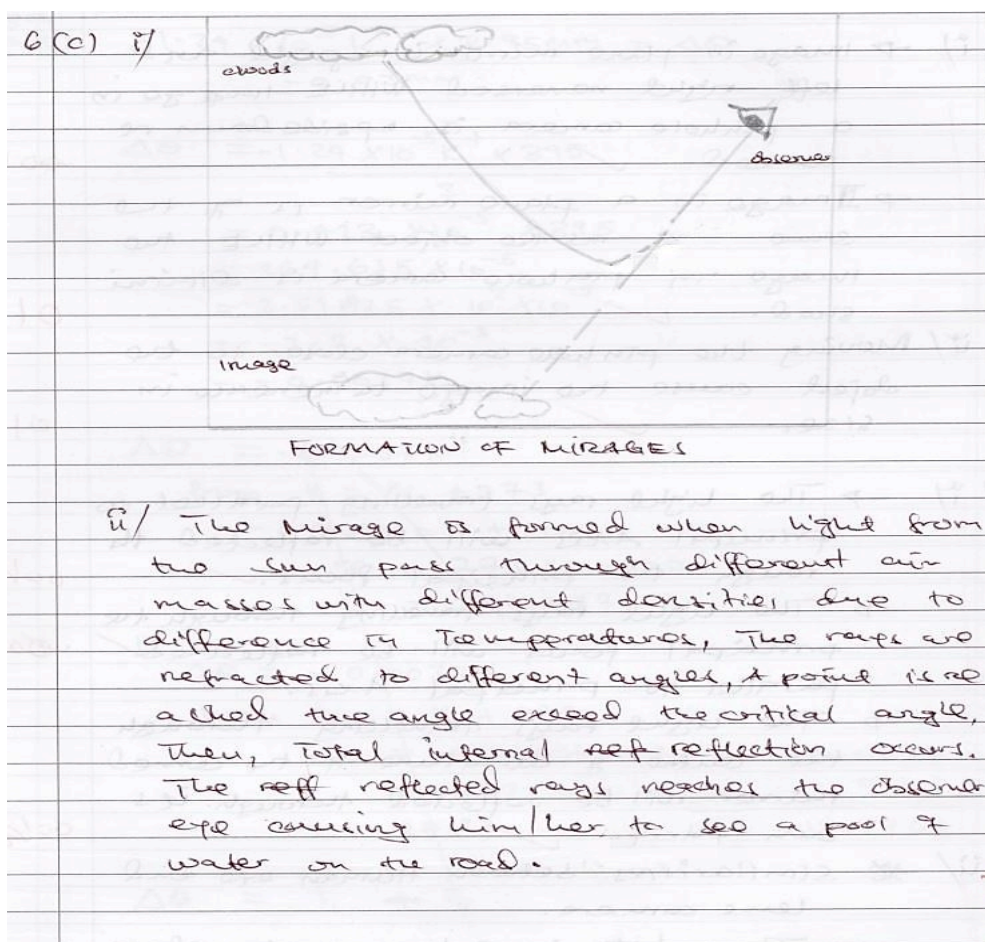 6 (c) i/
clouds
observer
image
FORMATION OF MIRAGES
ii/ The Mirage is formed when light from
the sun pass through different air
masses with different densities due to
difference in Temperatures, The rays are
refracted to different angles, A point is re
ached the angle exceed the critical angle,
Then, Total internal ref reflection occurs.
The reff reflected rays reaches the observer
eye causing him/her to see a pool of
water on the road.